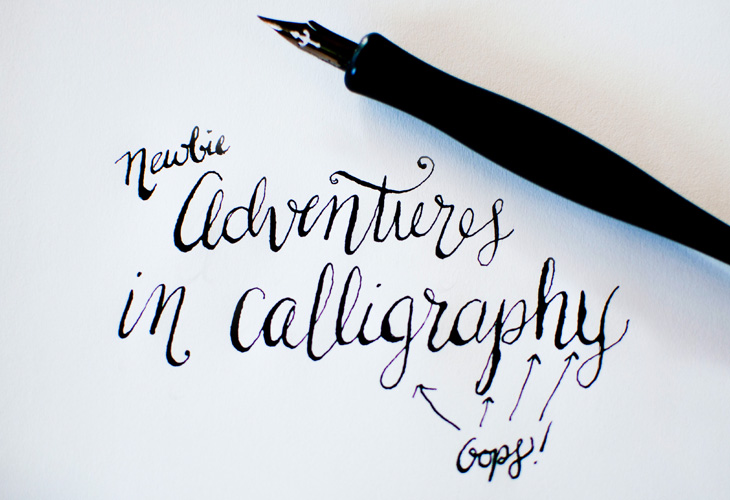 Newbie
Adventures
in calligraphy
Oops!